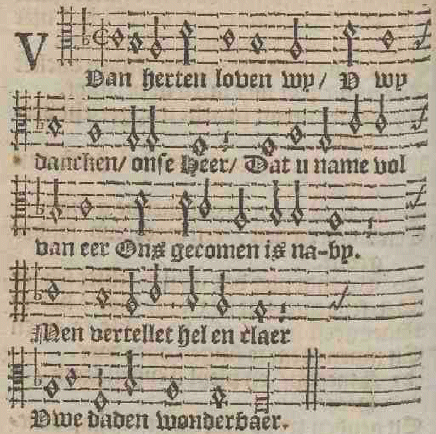 V
Van herten loven wy / V wy
dancken / onse Heer / Dat u name vol
van eer Ons gecomen is na-by.
Men vertellet hel en claer
Vwe daden wonderbaer.